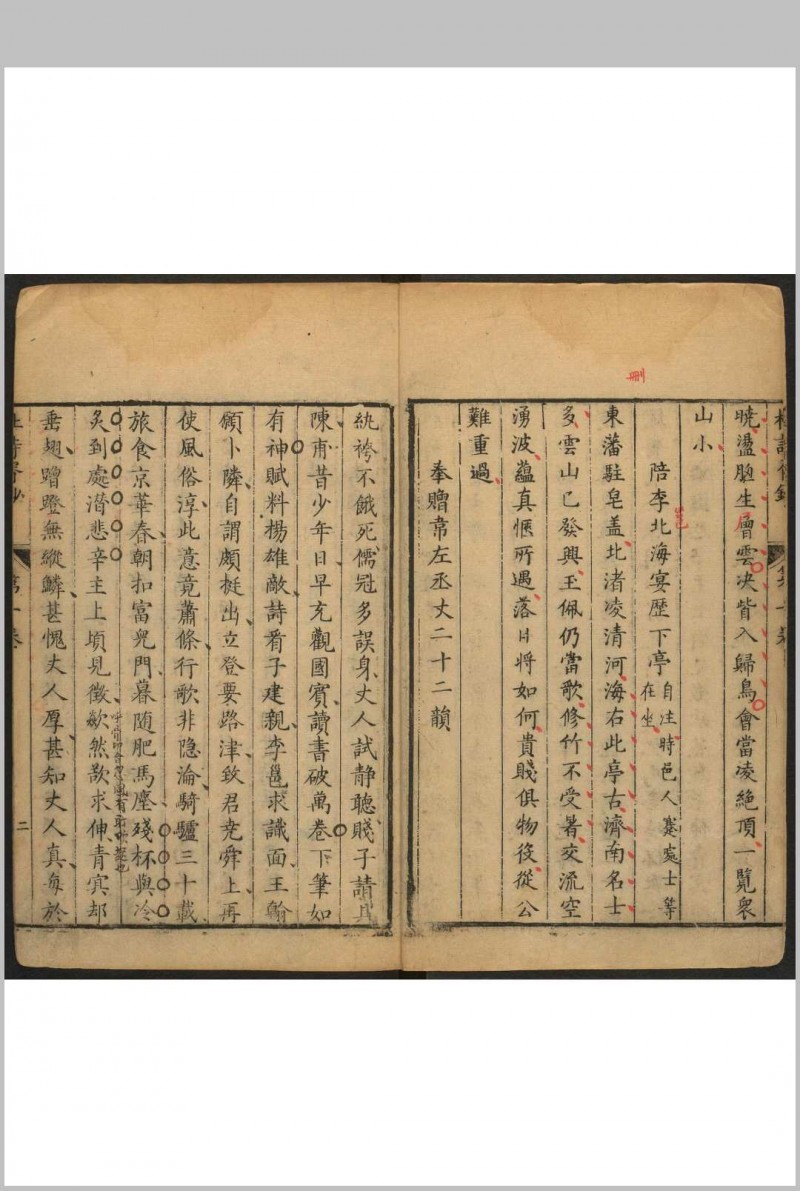 曉盪胸生層雲决眥入歸鳥會當凌絶頂一覽衆
山小
陪李北海宴歴下亭自注時邑人蹇處士等在坐
東藩駐皂盖北渚凌清河海右此亭古濟南名士
多雲山已發興玉佩仍當歌修竹不受暑交流空
湧波蘊真愜所遇落日將如何貴賤俱物役從公
難重過
奉贈韋左丞丈二十二韻
删
紈袴不餓死儒冠多誤身丈人試静聽賤子請具
陳甫昔少年日早充觀國賓讀書破萬卷下筆如
有神賦料楊雄敵詩看子建親李邕求識面王翰
願卜隣自謂頗挺出立登要路津致君堯舜上再
使風俗淳此意竟蕭條行歌非隐淪騎驢三十載
旅食京華春朝扣富兒門暮随肥馬塵殘杯與冷
炙到處潜悲辛主上頃見徵歘然欺求伸青㝠却
垂翅蹭蹬無縱鱗甚愧丈人厚甚知丈人真每於
第一卷
二